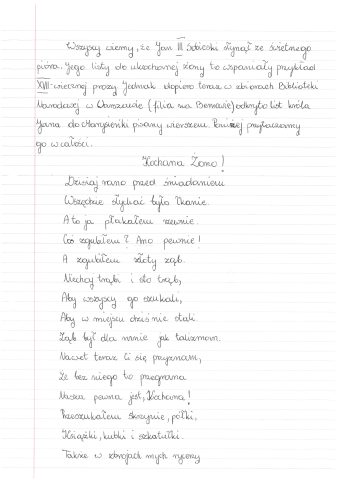 Wszyscy wiemy, że Jan III Sobieski słynął ze świetnego
pióra. Jego listy do ukochanej żony to wspaniały przykład
XVII-wiecznej prozy. Jednak dopiero teraz w zbiorach Biblioteki
Narodowej w Warszawie (filia na Bemowie) odkryto list króla
Jana do Marysieńki pisany wierszem. Poniżej przytaczamy
go w całości.
Kochana Żono!
Dzisiaj rano przed śniadaniem
Wszędzie słychać było łkanie.
A to ja płakałem rzewnie.
Coś zgubiłem? Ano pewnie!
A zgubiłem złoty ząb.
Niechaj trąbi i sto trąb,
Aby wszyscy go szukali,
Aby w miejscu dziś nie stali.
Ząb był dla mnie jak talizman.
Nawet teraz Ci się przyznam,
Że bez niego to przegrana
Nasza pewna jest, Kochana!
Przeszukałem skrzynie, półki,
Książki, kubki i szkatułki.
Także w zbrojach mych rycerzy